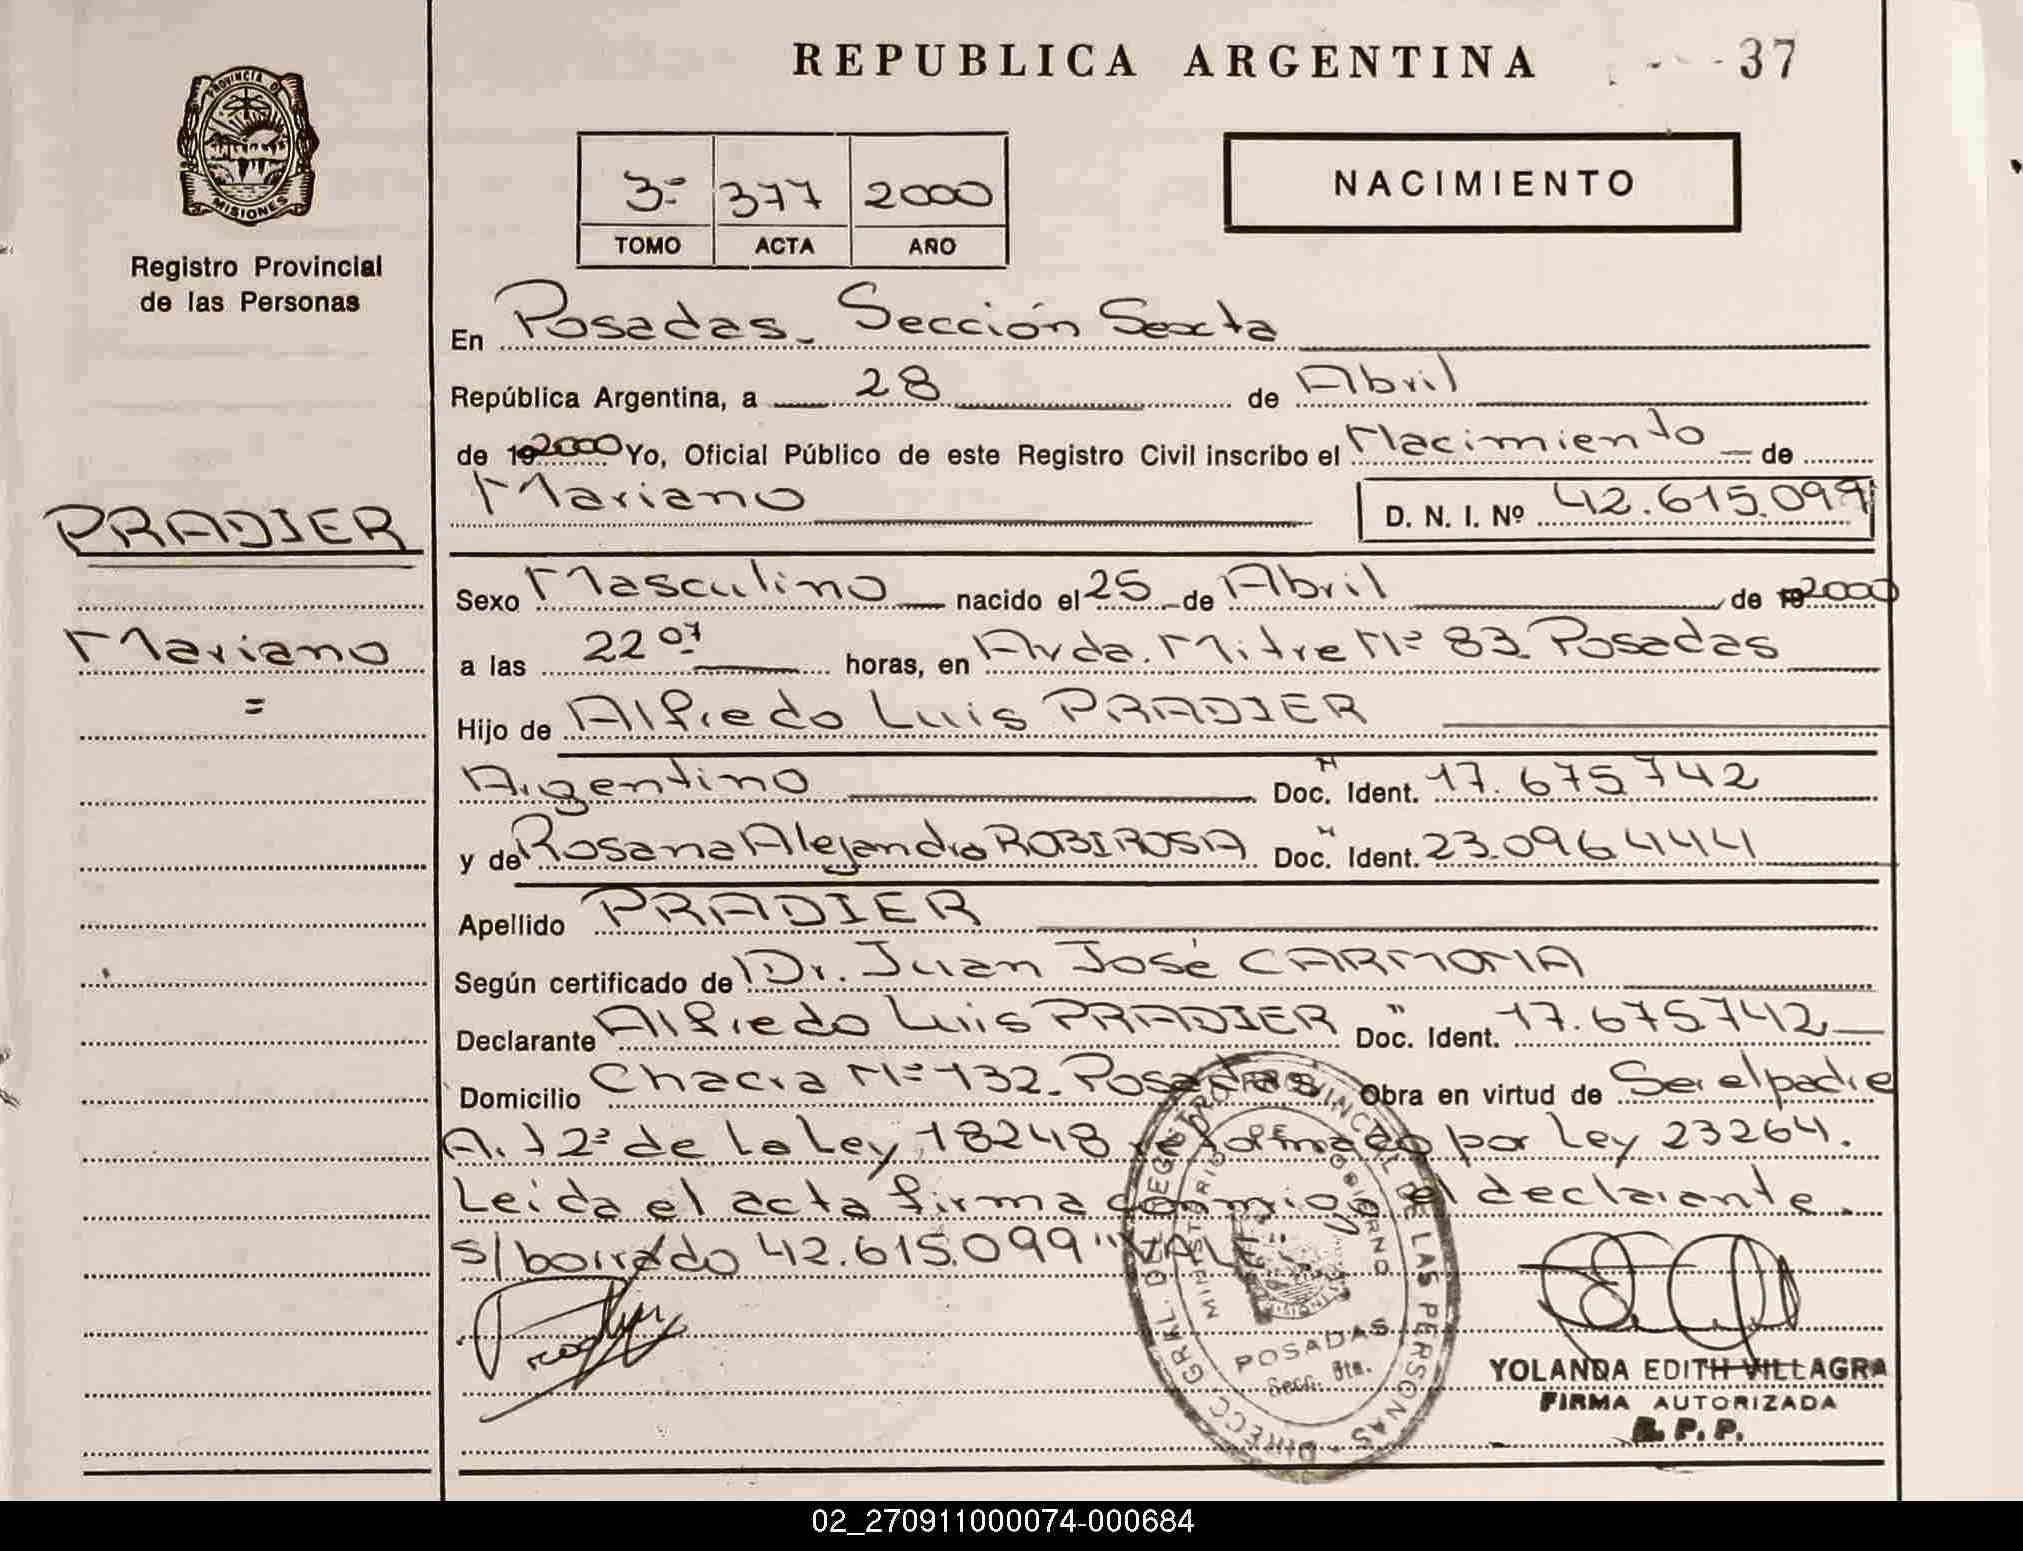 REPUBLICA ARGENTINA
37
PROVINCIA DE
MISIONES
Registro Provincial
de las Personas
3º 377 2000
TOMO ACTA AÑO
NACIMIENTO
En Posadas. Sección Sexta
República Argentina, a 28 de Abril
de 192000 Yo, Oficial Público de este Registro Civil inscribo el Nacimiento de
Mariano D. N. I. Nº 42.615.099
PRADIER
Mariano
=
Sexo Masculino nacido el 25 de Abril de 2000
a las 22 07 horas, en Avda. Mitre Nº 83 Posadas
Hijo de Alfredo Luis PRADIER
Argentino Doc. Ident. 17.675742
y de Rosana Alejandra ROBIROSA Doc. Ident. 23.096444
Apellido PRADIER
Según certificado de Dr. Juan José CARMONA
Declarante Alfredo Luis PRADIER Doc. Ident. 17.675742
Domicilio Chacra Nº 132. Posadas Obra en virtud de Ser el padre
A. 12º de la Ley 18248 reformado por Ley 23264.
Leida el acta firma conmigo el declarante.
s/borrado 42.615.099 "VALE"
DIRECC. GRAL. DEL REGISTRO PROVINCIAL DE LAS PERSONAS
MINISTERIO DE GOBIERNO
MISIONES
POSADAS
Secc. 6ta.
YOLANDA EDITH VILLAGRA
FIRMA AUTORIZADA
R. P. P.
02_270911000074-000684